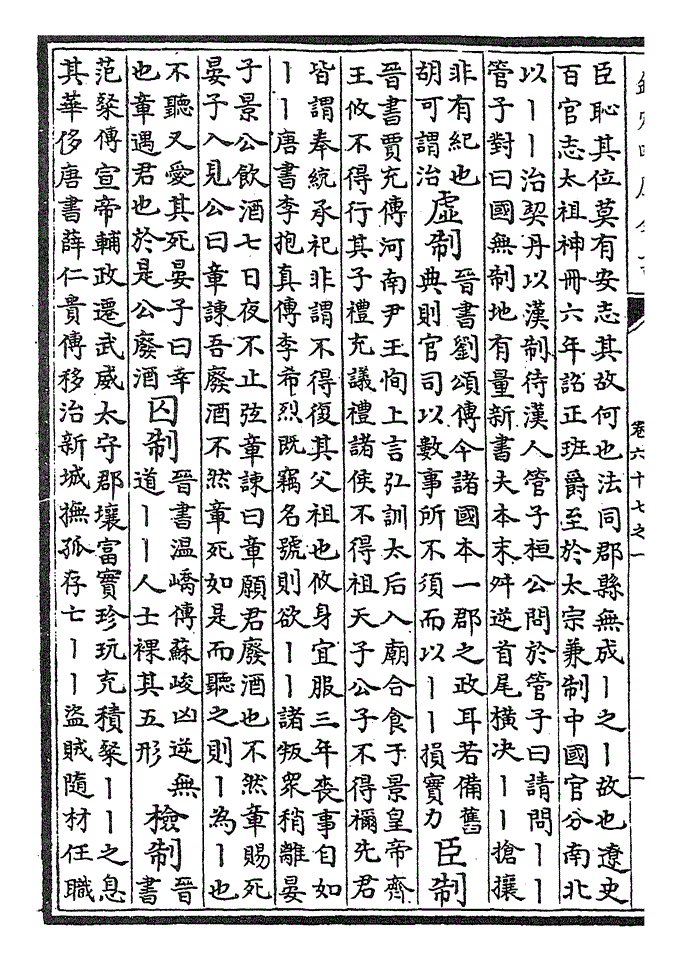 欽定四庫全書
卷六十七之一
臣恥其位莫有安志其故何也法同郡縣無成丨之丨故也遼史
百官志太祖神冊六年詔正班爵至於太宗兼制中國官分南北
以丨丨治契丹以漢制待漢人管子桓公問於管子曰請問丨丨
管子對曰國無制地有量新書夫本末舛逆首尾橫決丨丨搶攘
非有紀也
胡可謂治
虛制
晉書劉頌傳今諸國本一郡之政耳若備舊
典則官司以數事所不須而以丨丨損實力
臣制
晉書賈充傳河南尹王恂上言弘訓太后入廟合食于景皇帝齊
王攸不得行其子禮充議禮諸侯不得祖天子公子不得禰先君
皆謂奉統承祀非謂不得復其父祖也攸身宜服三年喪事自如
丨丨唐書李抱真傳李希烈既竊名號則欲丨丨諸叛衆稍離晏
子景公飲酒七日夜不止弦章諫曰章願君廢酒也不然章賜死
晏子入見公曰章諫吾廢酒不然章死如是而聽之則丨為丨也
不聽又愛其死晏子曰幸
也章遇君也於是公廢酒
囚制
晉書溫嶠傳蘇峻凶逆無
道丨丨人士裸其五形
檢制
晉
書
范粲傳宣帝輔政遷武威太守郡壤富實珍玩充積粲丨丨之息
其華侈唐書薛仁貴傳移治新城撫孤存亡丨丨盜賊隨材任職